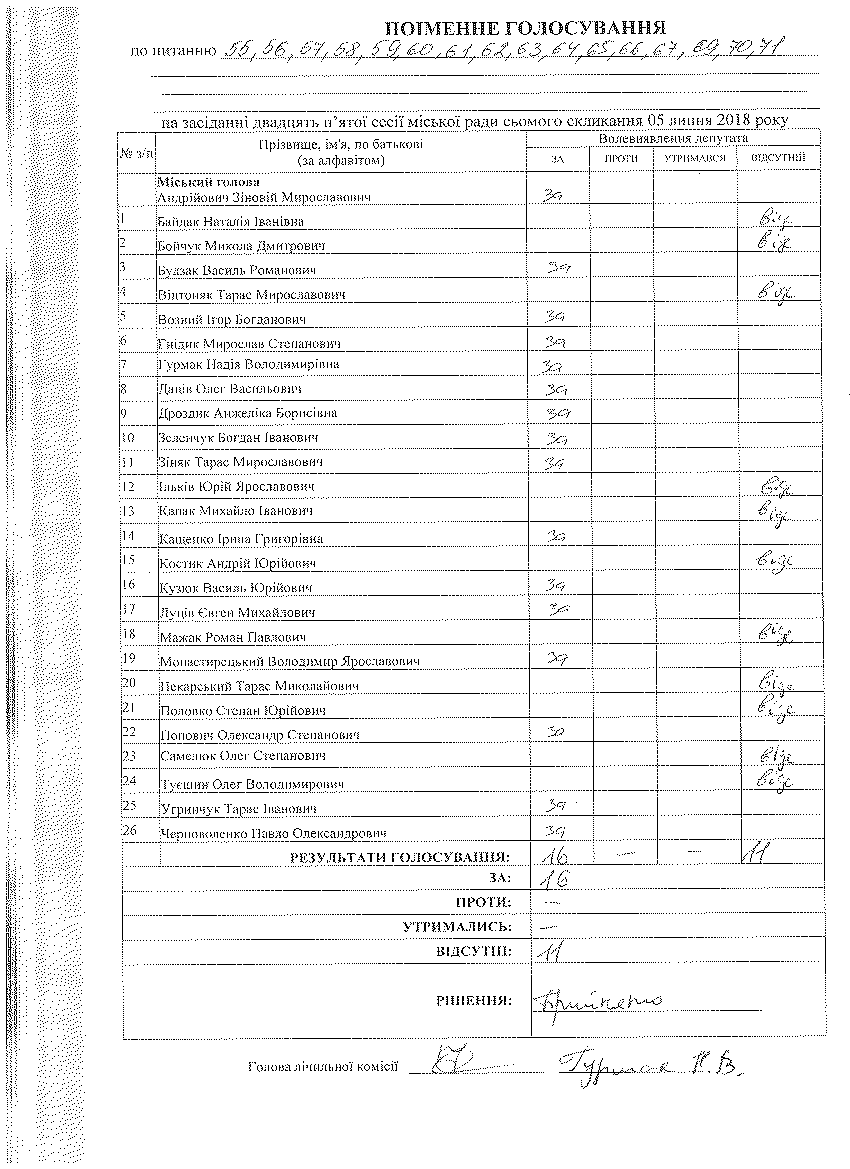 ПОІМЕННЕ ГОЛОСУВАННЯ
по питанню 55, 56, 57, 58, 59, 60, 61, 62, 63, 64, 65, 66, 67, 69, 70, 71
на засіданні двадцять п'ятої сесії міської ради сьомого скликання 05 липня 2018 року
№ з/п Прізвище, ім'я, по батькові (за алфавітом) Волевиявлення депутата
ЗА ПРОТИ УТРИМАВСЯ ВІДСУТНІЙ
Міський голова
Андрійович Зіновій Мирославович за
1 Байдак Наталія Іванівна відс
2 Бойчук Микола Дмитрович відс
3 Будзак Василь Романович за
4 Війтоняк Тарас Мирославович відс
5 Возний Ігор Богданович за
6 Гнідик Мирослав Степанович за
7 Гурмак Надія Володимирівна за
8 Даців Олег Васильович за
9 Дроздик Анжеліка Борисівна за
10 Зеленчук Богдан Іванович за
11 Зіняк Тарас Мирославович за
12 Ільків Юрій Ярославович відс
13 Капак Михайло Іванович відс
14 Кащенко Ірина Григорівна за
15 Костик Андрій Юрійович відс
16 Кузюк Василь Юрійович за
17 Луців Євген Михайлович за
18 Мажак Роман Павлович відс
19 Монастирецький Володимир Ярославович за
20 Пекарський Тарас Миколайович відс
21 Половко Степан Юрійович відс
22 Попович Олександр Степанович за
23 Самелюк Олег Степанович відс
24 Туєшин Олег Володимирович відс
25 Угринчук Тарас Іванович за
26 Черноволенко Павло Олександрович за
РЕЗУЛЬТАТИ ГОЛОСУВАННЯ: 16 — — 11
ЗА: 16
ПРОТИ: —
УТРИМАЛИСЬ: —
ВІДСУТНІ: 11
РІШЕННЯ: Прийнято
Голова лічильної комісії Гурмак Н.В.